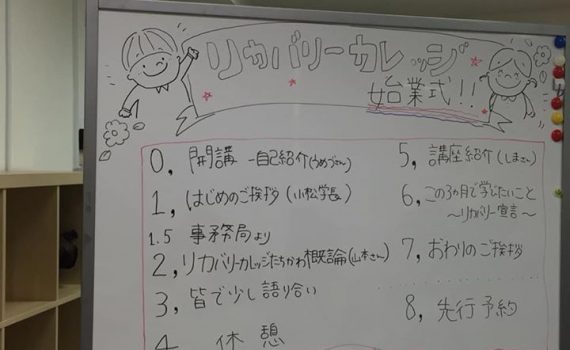 リカバリーカレッジ
始業式!!
0, 開講 -自己紹介(うめづさん)
1, はじめのご挨拶(小松学長)
1.5 事務局より
2, リカバリーカレッジたちかわ概論(山本さん)
3, 皆で少し語り合い
4, 休憩
5, 講座紹介(しまさん)
6, この3ヵ月で学びたいこと
〜リカバリー宣言〜
7, おわりのご挨拶
8, 先行予約